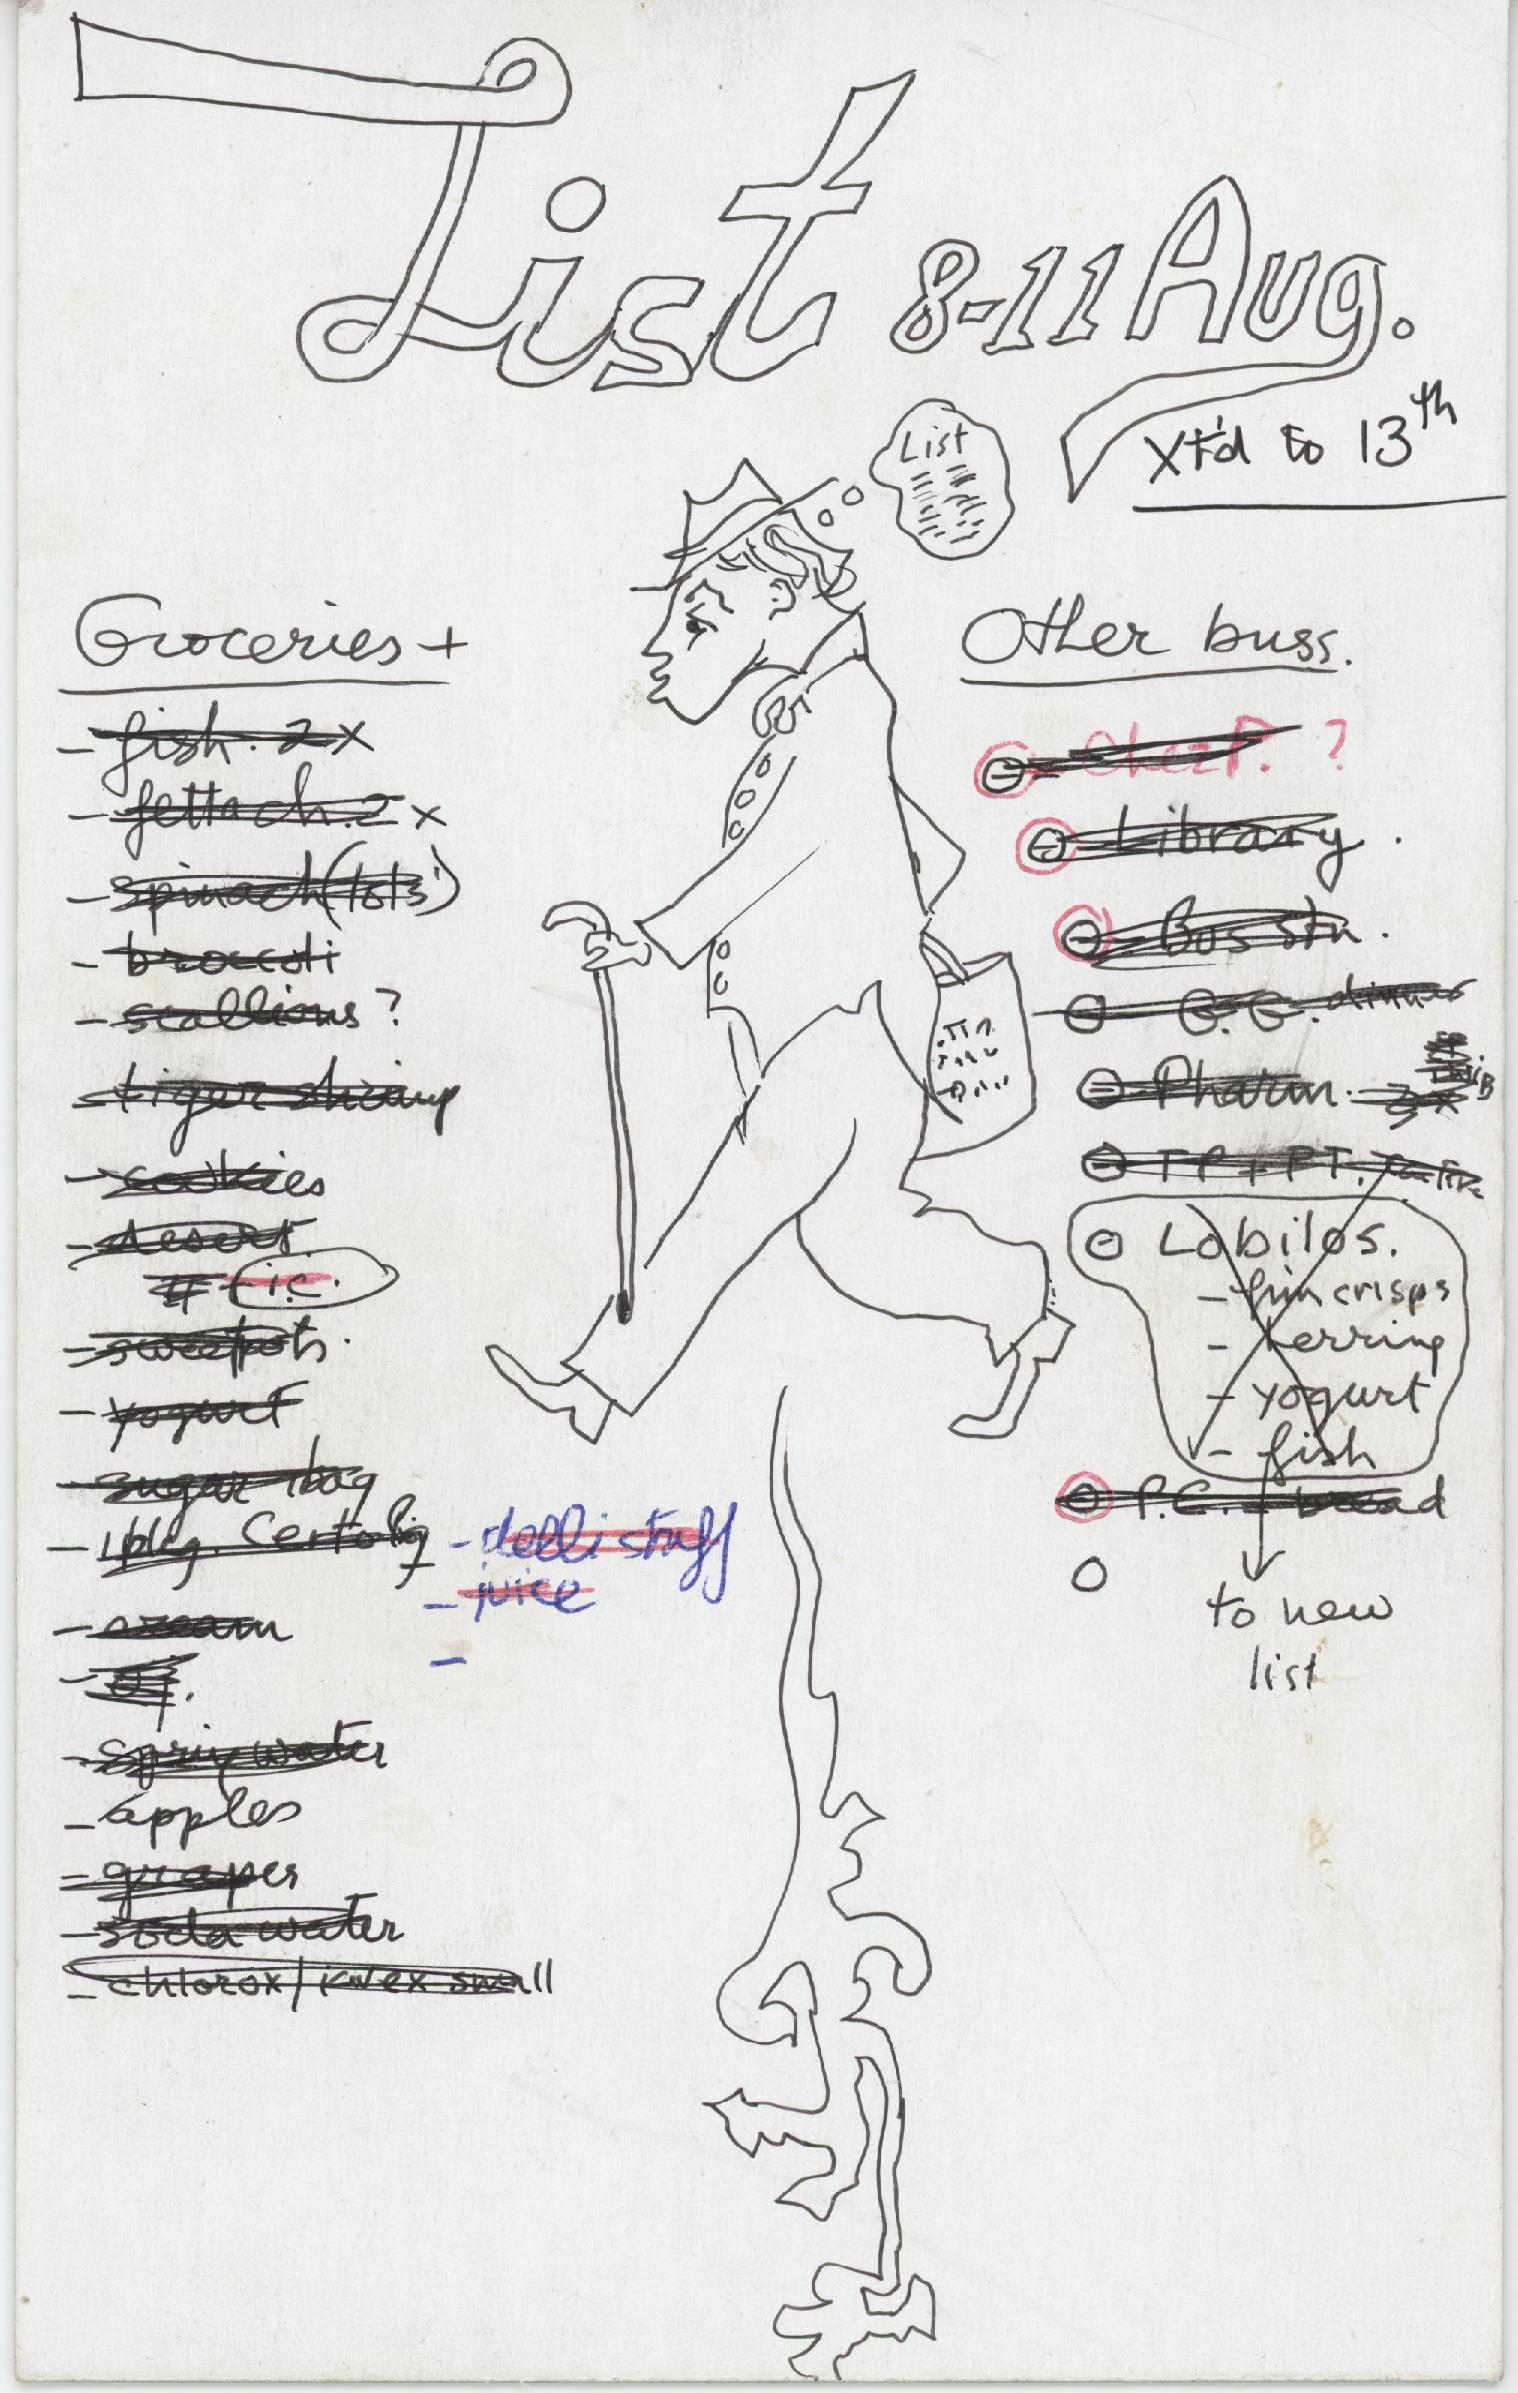 List 8-11 Aug.
Xt'd to 13th
List
Groceries +
- fish. 2x
- fettach. 2x
- spinach (lots)
- broccoli
- scallions?
- tiger shrimp
- cookies
- desert.
i.c.
- sweetpots.
- yogurt
- sugar 1 bag
- 1 pkg. Certo liq
- cream
- oj.
- spring water
- apples
- grapes
- soda water
- chlorox / small
- delli stuff
- juice
-
Other buss.
- Chez P. ?
- Library.
- Bus stn.
- G.G. dinner
- Pharm. 
- TP + PT.
- Lobilos.
- fin crisps
- herring
- yogurt
- fish
- P.C. - bread
to new
list